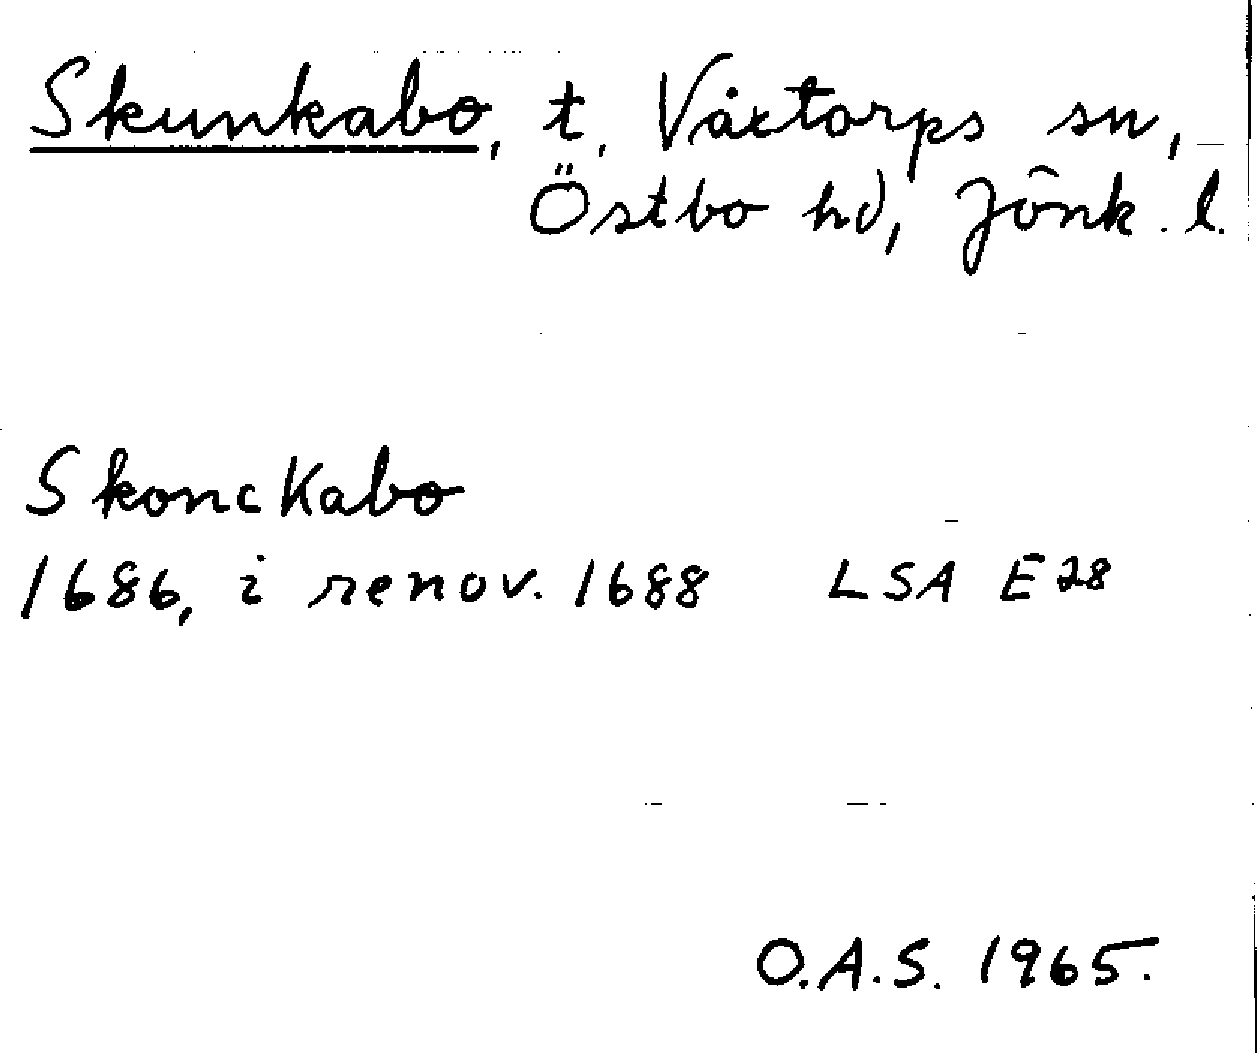 Skunkabo, t. Våxtorps sn,
Östbo hd, Jönk. l.
Skonckabo
1686, i renov. 1688 LSA E 28
O.A.S. 1965.